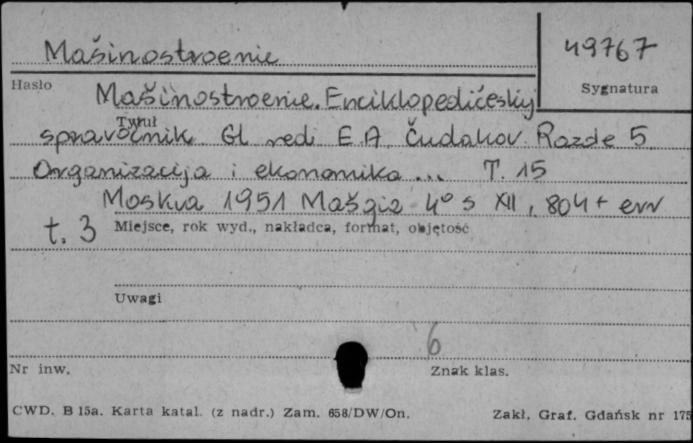 Mašinostroenie 49767
Hasło Sygnatura
Mašinostroenie. Enciklopedičeskij
Tytuł
spravočnik. Gl. red. E. A. Čudakov. Razde 5
Organizacija i ekonomika ... T. 15
Moskva 1951 Mašgiz 4° s XII, 804 + err
t. 3 Miejsce, rok wyd., nakładca, format, objętość
Uwagi
6
Nr inw. Znak klas.
CWD. B 15a. Karta katal. (z nadr.) Zam. 658/DW/On. Zakł. Graf. Gdańsk nr 175